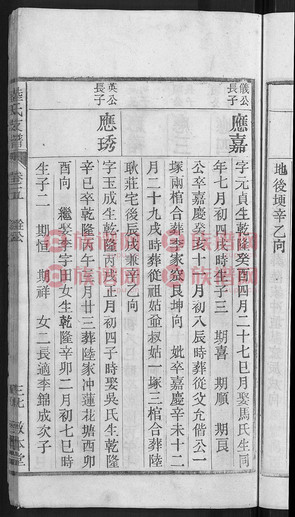 地後埂辛乙向
儀公長子
應嘉
字元貞生乾隆癸酉四月二十七巳時娶馬氏生同
年七月初四戌時生子三 期喜 期順 期良
公卒嘉慶癸亥十一月初八辰時葬從父允偕公一
塚兩棺合葬李家窊艮坤向 妣卒嘉慶辛未十二
月二十九戌時葬從祖姑爺叔姑一塚三棺合葬陸
耿莊宅後辰戌兼辛乙向
英公長子
應琇
字玉成生乾隆丙戌正月初四子時娶吳氏生乾隆
辛巳卒乾隆丙午三月廿三葬陸家冲蓮花塘酉卯
酉向 繼娶李字田女生乾隆辛卯二月初七巳時
生子二 期恒 期祥 女二長適李錦成次子
氏支譜
卷二五
敬本堂